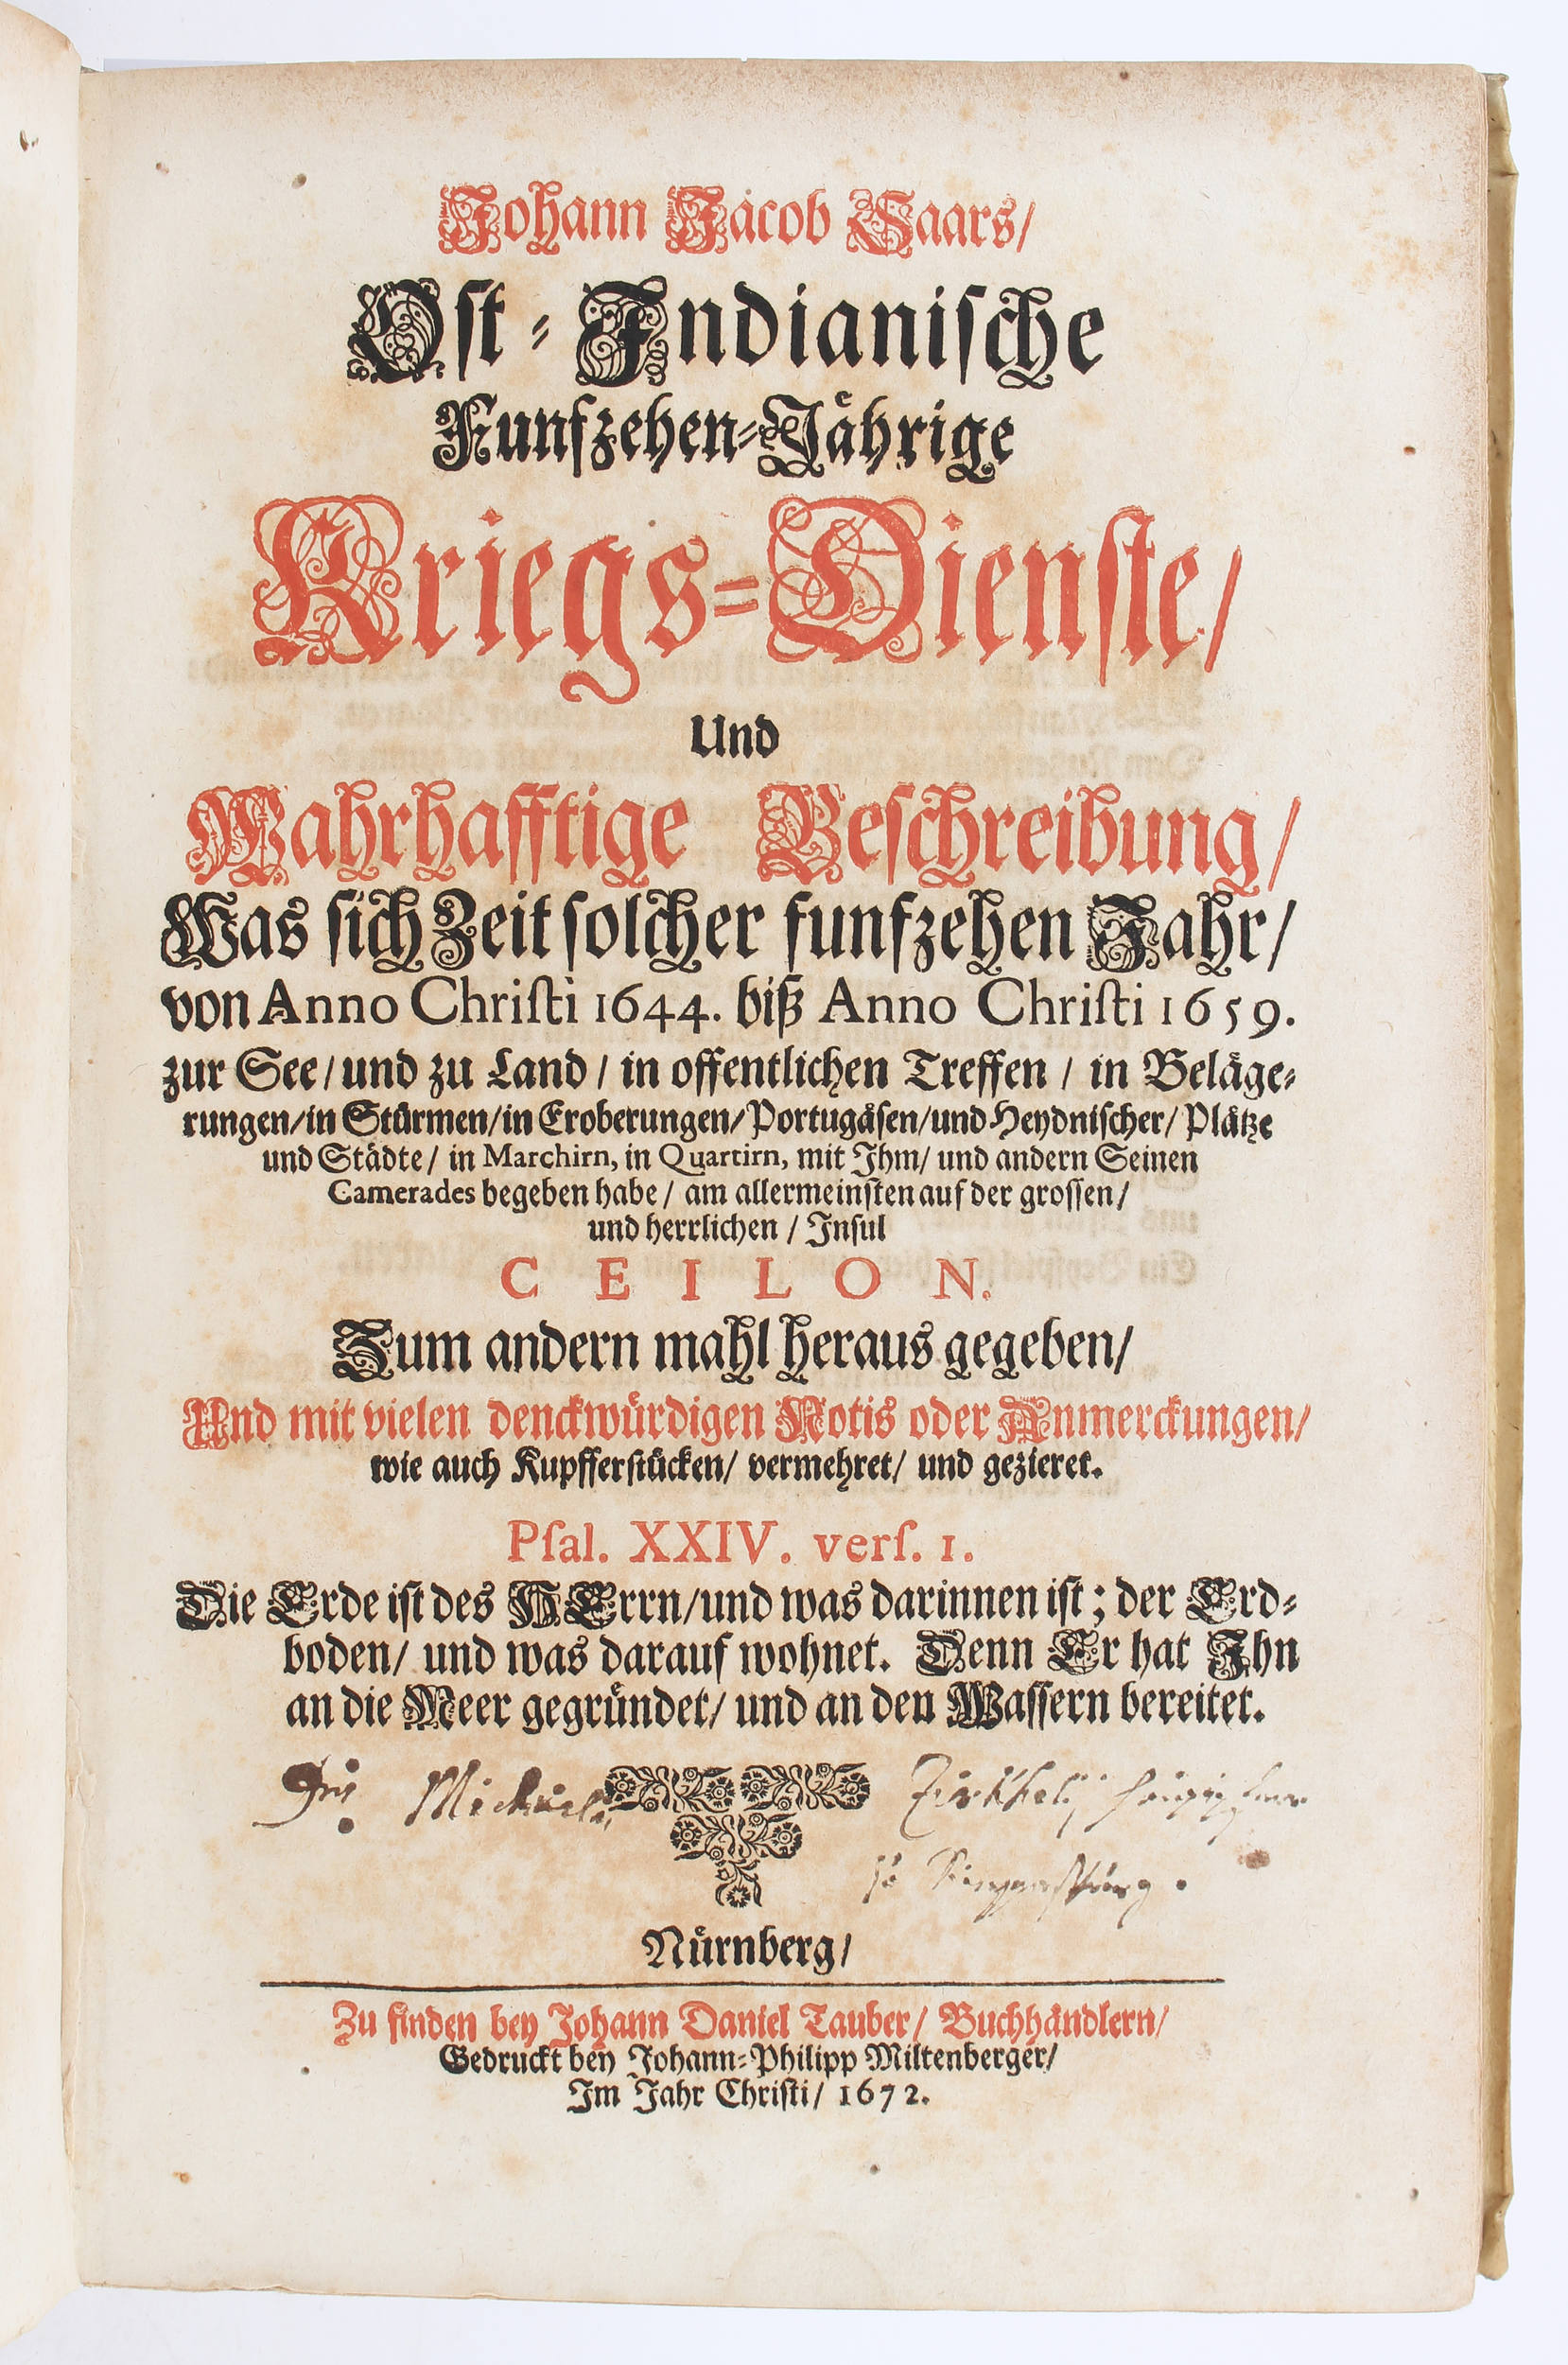 Johann Jacob Saars/
Ost-Indianische
Funfzehen-Jährige
Kriegs-Dienste/
Und
Wahrhafftige Beschreibung/
Was sich Zeit solcher funfzehen Jahr/
von Anno Christi 1644. biß Anno Christi 1659.
zur See/ und zu Land/ in offentlichen Treffen/ in Beläge-
rungen/ in Stürmen/ in Eroberungen/ Portugäsen/ und Heydnischer/ Plätze
und Städte/ in Marchirn, in Quartirn, mit Ihm/ und andern Seinen
Camerades begeben habe/ am allermeinsten auf der grossen/
und herrlichen/ Insul
CEILON.
Zum andern mahl heraus gegeben/
Und mit vielen denckwürdigen Notis oder Anmerckungen/
wie auch Kupfferstücken/ vermehret/ und gezieret.
Psal. XXIV. vers. 1.
Die Erde ist des HErrn/ und was darinnen ist; der Erd-
boden/ und was darauf wohnet. Denn Er hat Ihn
an die Meer gegründet/ und an den Wassern bereitet.
Michaelis
Nürnberg/
Zu finden bey Johann Daniel Tauber/ Buchhändlern/
Gedruckt bey Johann-Philipp Miltenberger/
Im Jahr Christi/ 1672.